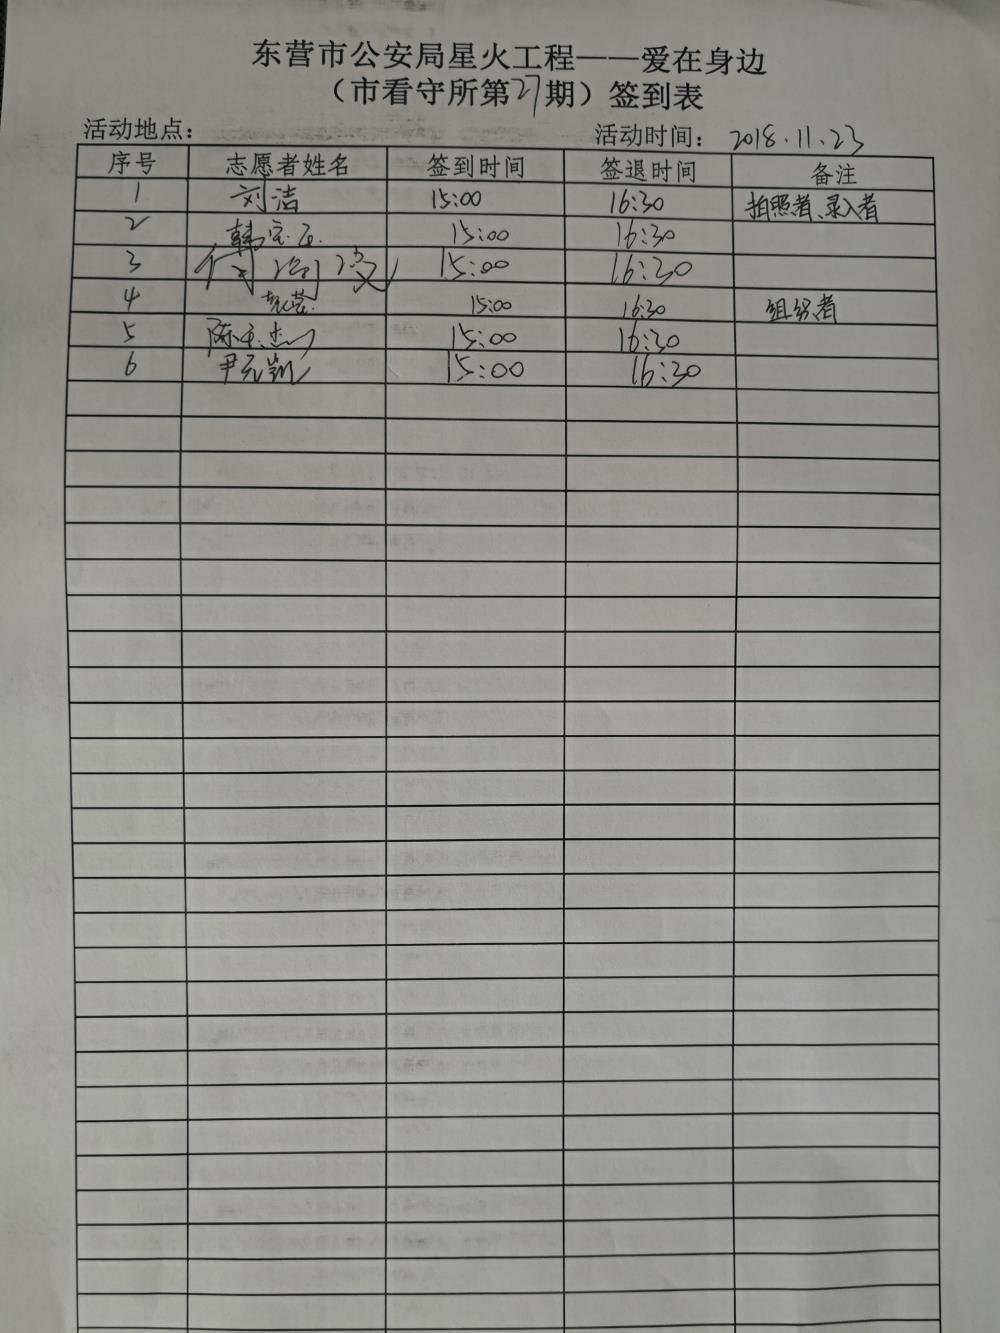 东营市公安局星火工程——爱在身边
（市看守所第27期）签到表
活动地点： 活动时间： 2018.11.23
序号 志愿者姓名 签到时间 签退时间 备注
1 刘洁 15:00 16:30 拍照者、录入者
2 韩 15:00 16:30
3 15:00 16:30
4 15:00 16:30 组织者
5 陈 15:00 16:30
6 尹元凯 15:00 16:30